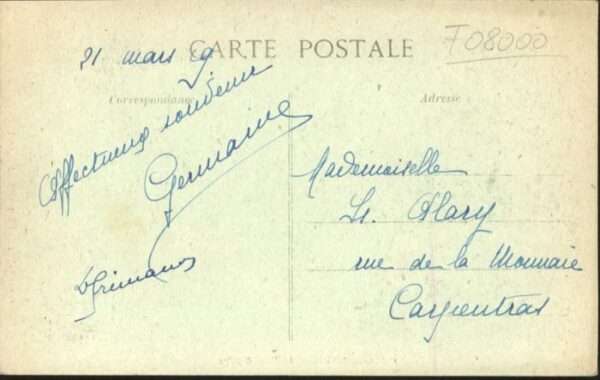 CARTE POSTALE
F08000
21 mars 29
Correspondance
Adresse
Affectueux souvenir
Germaine
Mademoiselle
Alary
rue de la Monnaie
Carpentras